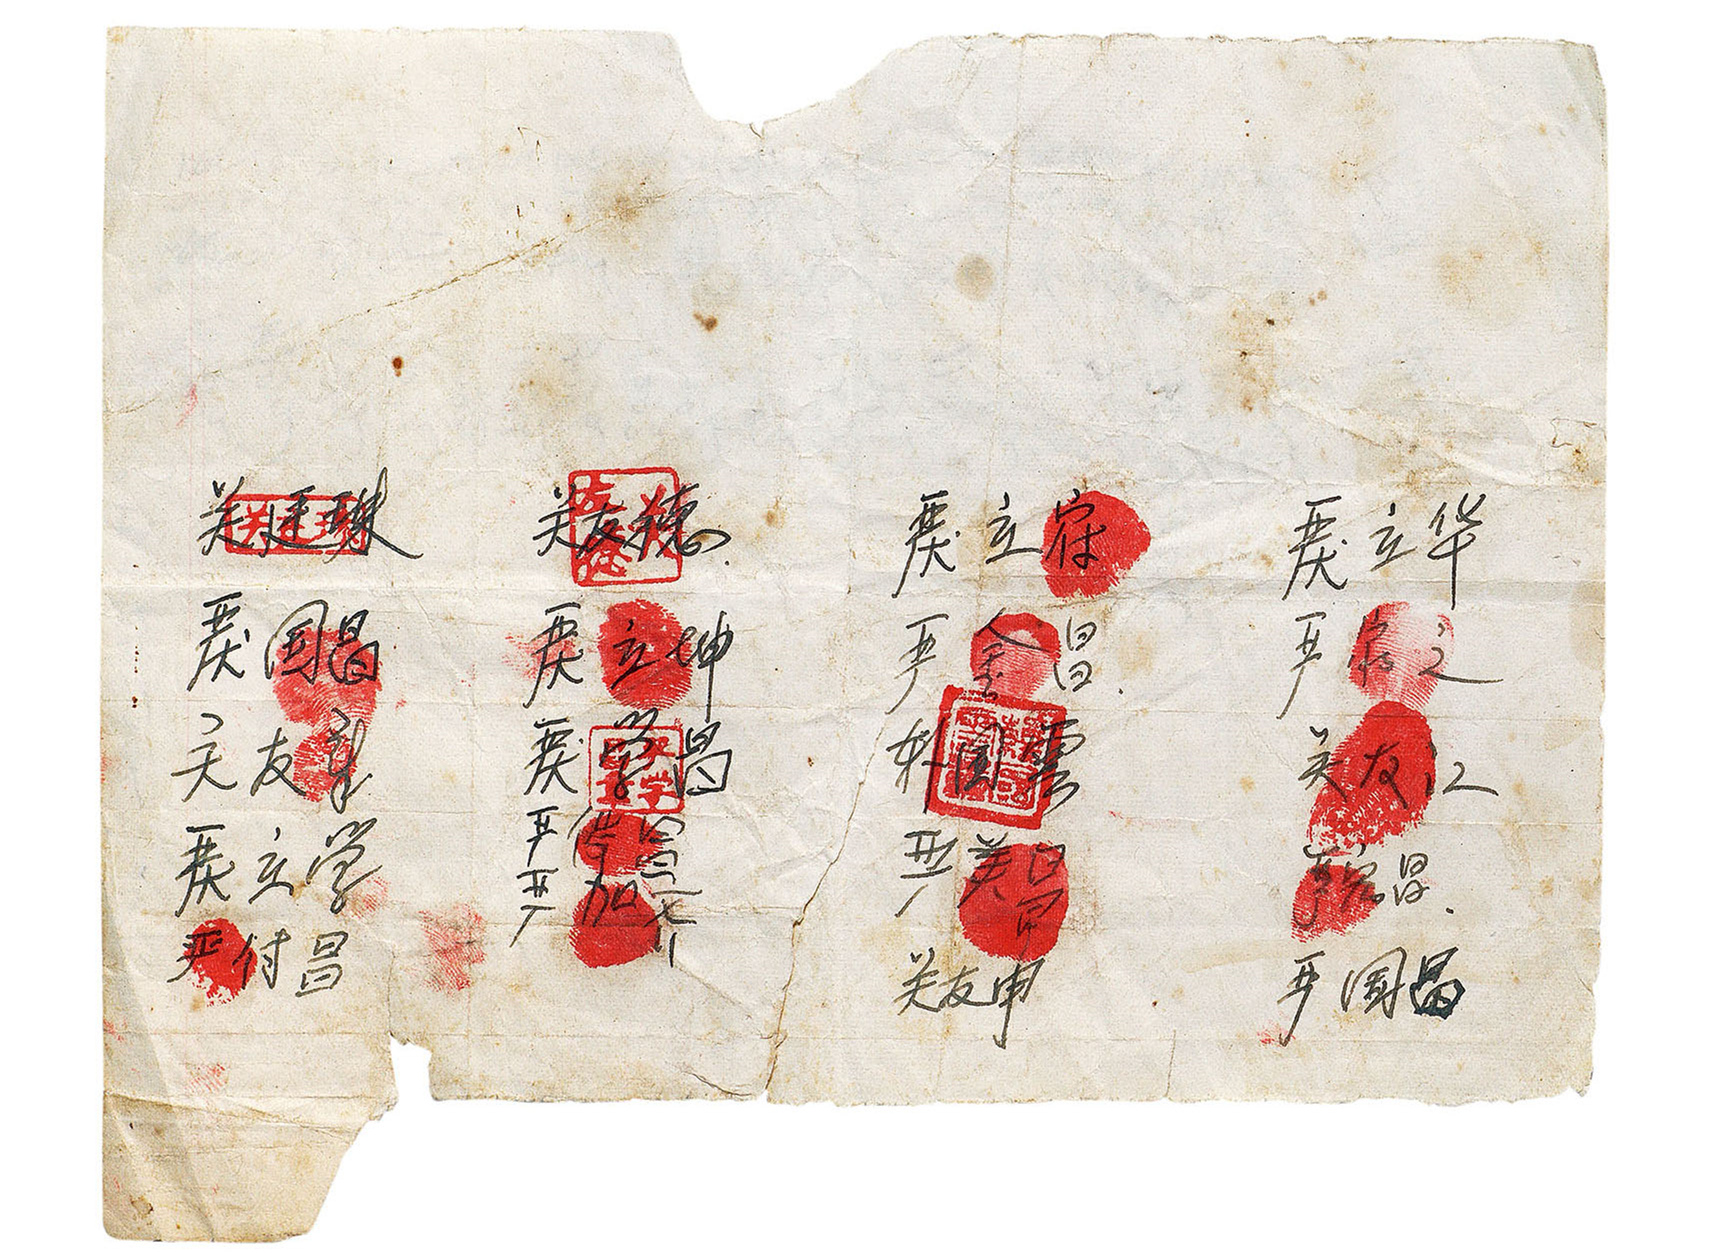 关廷珠 关友德 严立符 严立华
严国昌 严立坤 严金昌 严家芝
关友章 严学昌 韩国云 关友江
严立学 严俊昌 严美昌 严宏昌
严付昌 严家其 关友申 严国昌